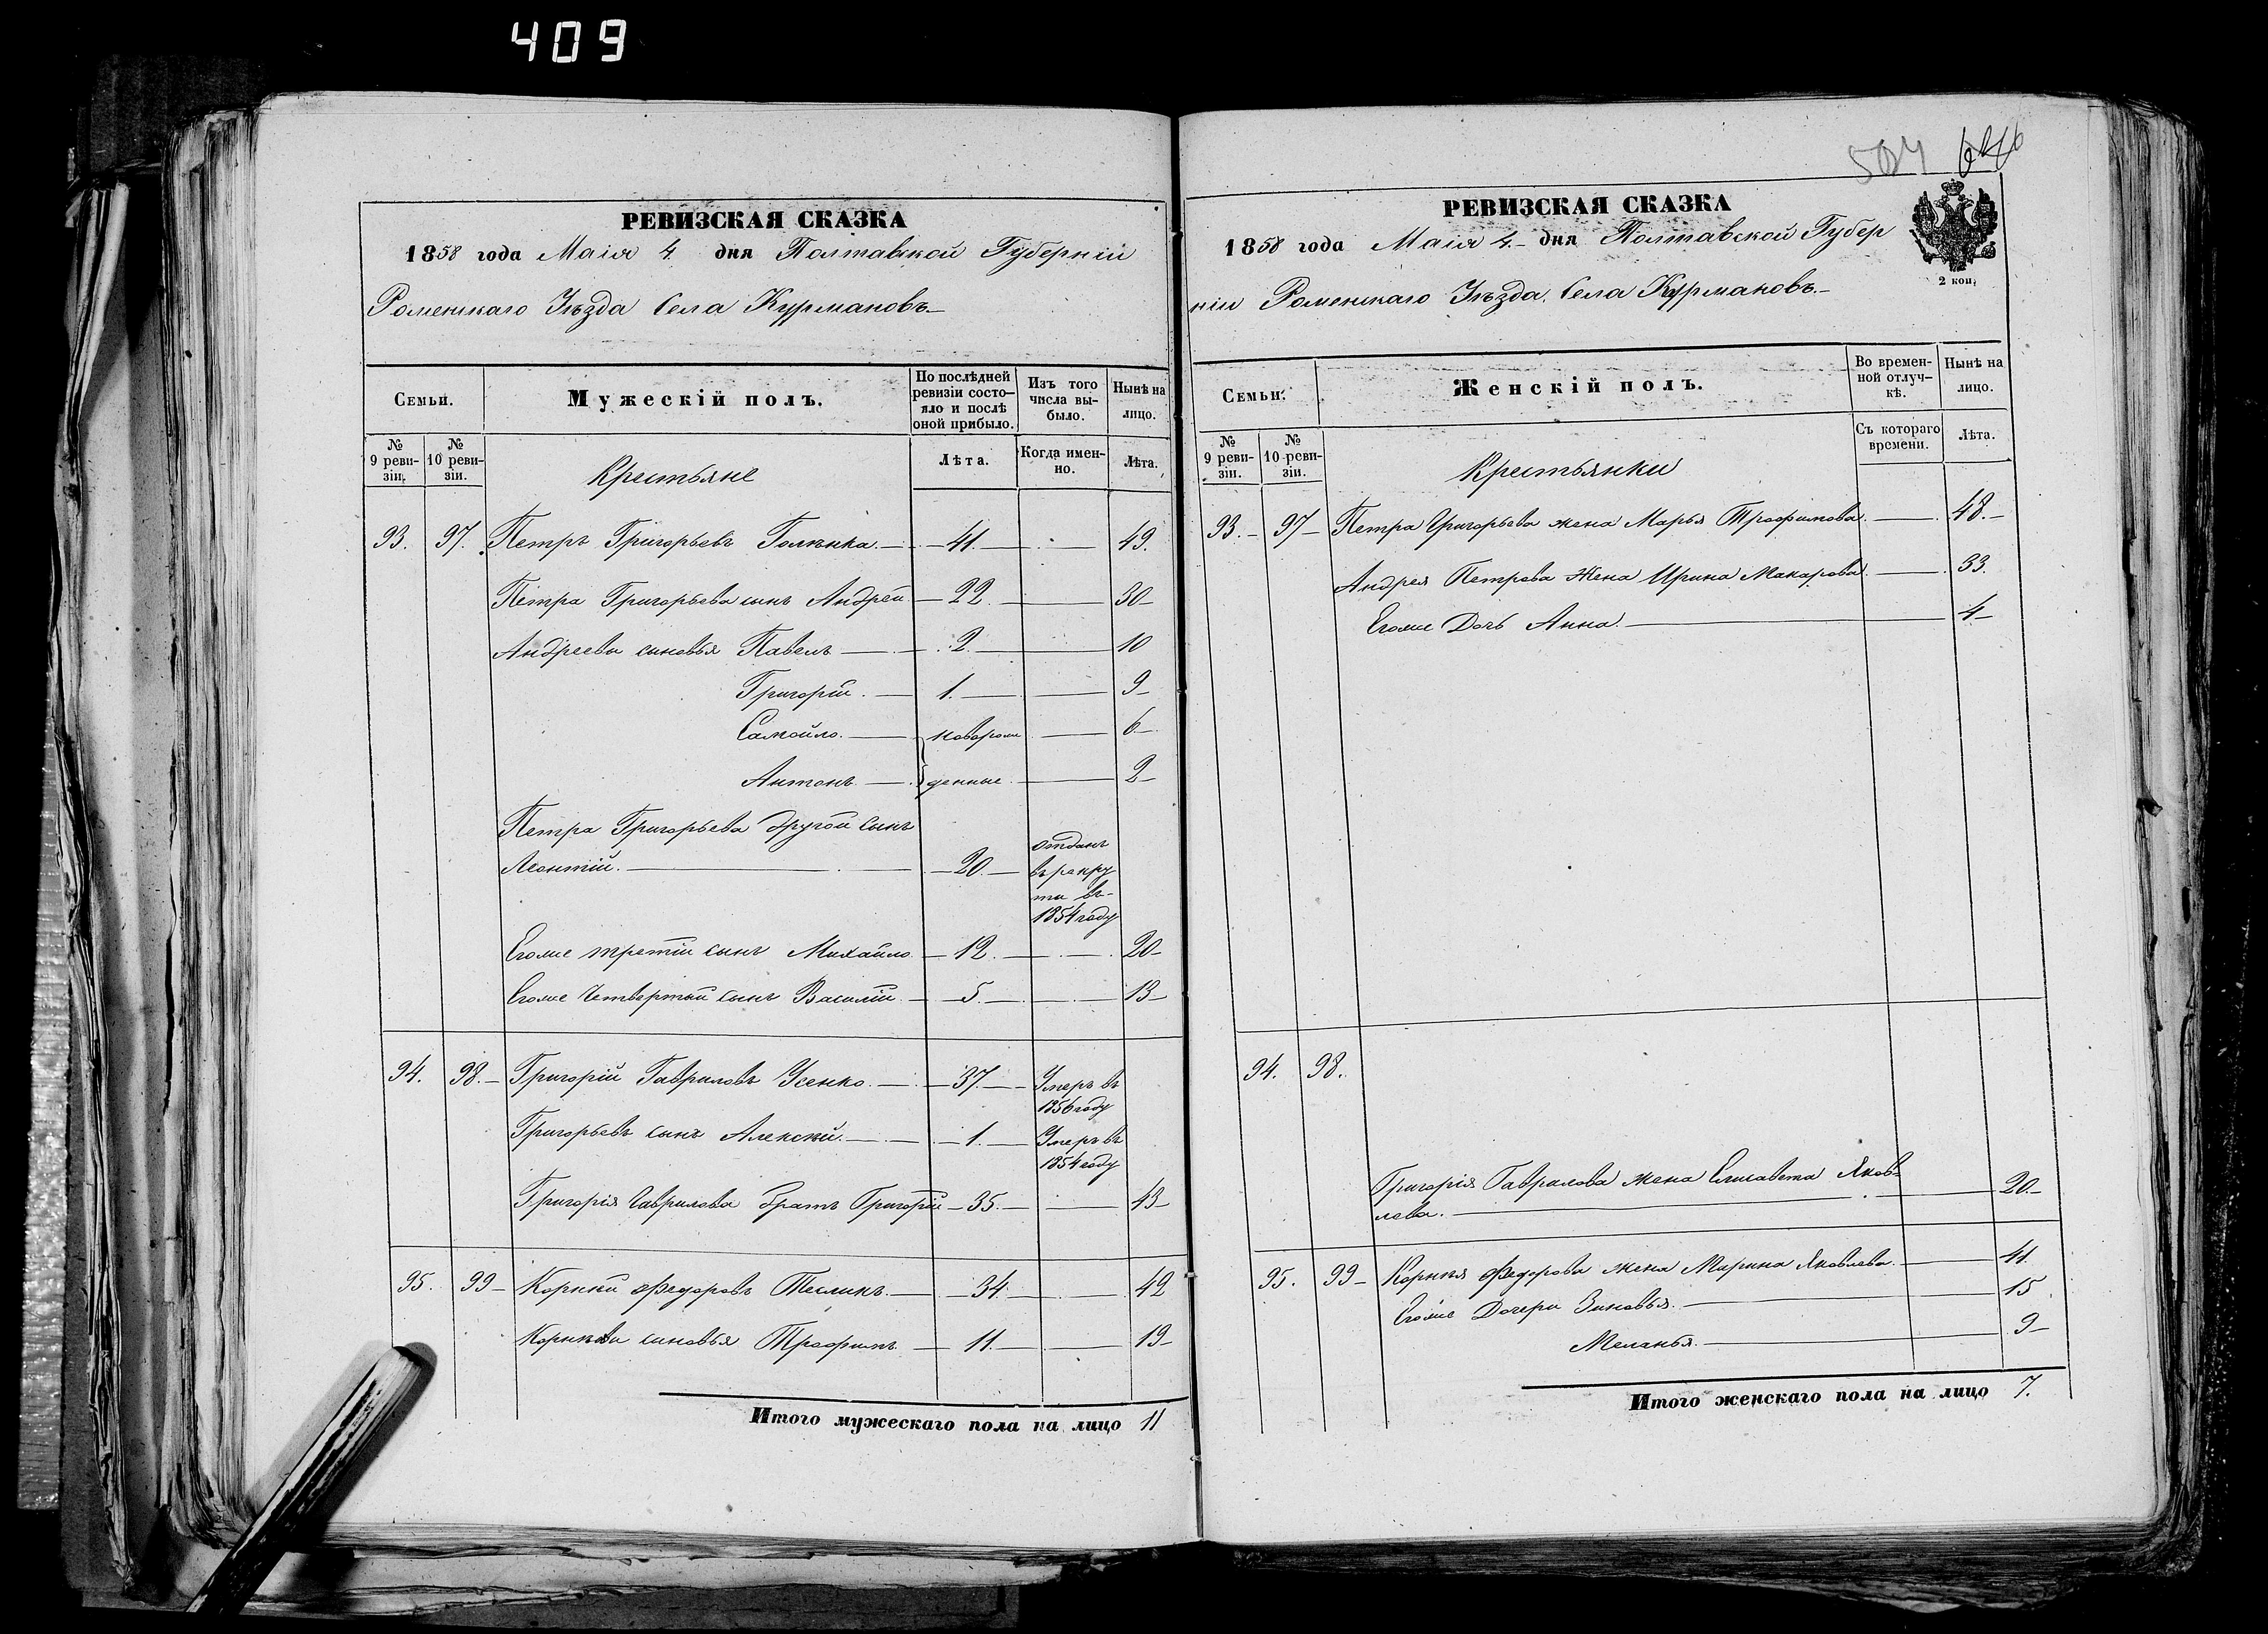 409
504
РЕВИЗСКАЯ СКАЗКА
1858 года Маія 4 дня Полтавской Губерніи
Роменскаго Уѣзда Села Курмановъ
Семьи. Мужескій полъ. По послѣдней ревизіи состояло и послѣ оной прибыло. Изъ того числа выбыло. Нынѣ на лицо.
№ 9 ревизіи. № 10 ревизіи. Крестьяне Лѣта. Когда именно. Лѣта.
93. 97. Петръ Григорьевъ 41. 49.
Петра Григорьева сынъ Андрей 22. 30
Андреевы сыновья Павелъ 2. 10
Григорій. 1. 9
Самойло. новорож 6
Антонъ денные 2
Петра Григорьева другой сынъ
Леонтій. 20. отданъ
въ рекру
ты въ
1854 году
Егоже третій сынъ Михайло 12. 20
Егоже четвертый сынъ Василій 5. 13
94. 98. Григорій Гавриловъ Усенко. 37. Умеръ въ
1856 году
Григорьевъ сынъ Алексѣй. 1. Умеръ въ
1854 году
Григорія Гаврилова братъ Григорій 35. 43
95. 99 Корнѣй Федоровъ Теслинъ 34. 42
Корнѣевы сыновья Трофимъ 11. 19
Итого мужескаго пола на лицо 11
РЕВИЗСКАЯ СКАЗКА
1858 года Маія 4 дня Полтавской Губер
ніи Роменскаго Уѣзда. Села Курмановъ.
2 коп.
Семьи. Женскій полъ. Во временной отлучкѣ. Нынѣ на лицо.
№ 9 ревизіи. № 10 ревизіи. Крестьянки Съ котораго времени. Лѣта.
93. 97 Петра Григорьева жена Марья Трофимова. 48.
Андрея Петрова жена Ирина Макарова. 33.
Егоже Дочь Анна. 4
94. 98.
Григорія Гаврилова жена Елисавета Яков-
лева. 20.
95. 99 Корнѣя Федорова жена Марина Яковлева. 41
Егоже Дочери Зиновья. 15
Меланья. 9
Итого женскаго пола на лицо 7.